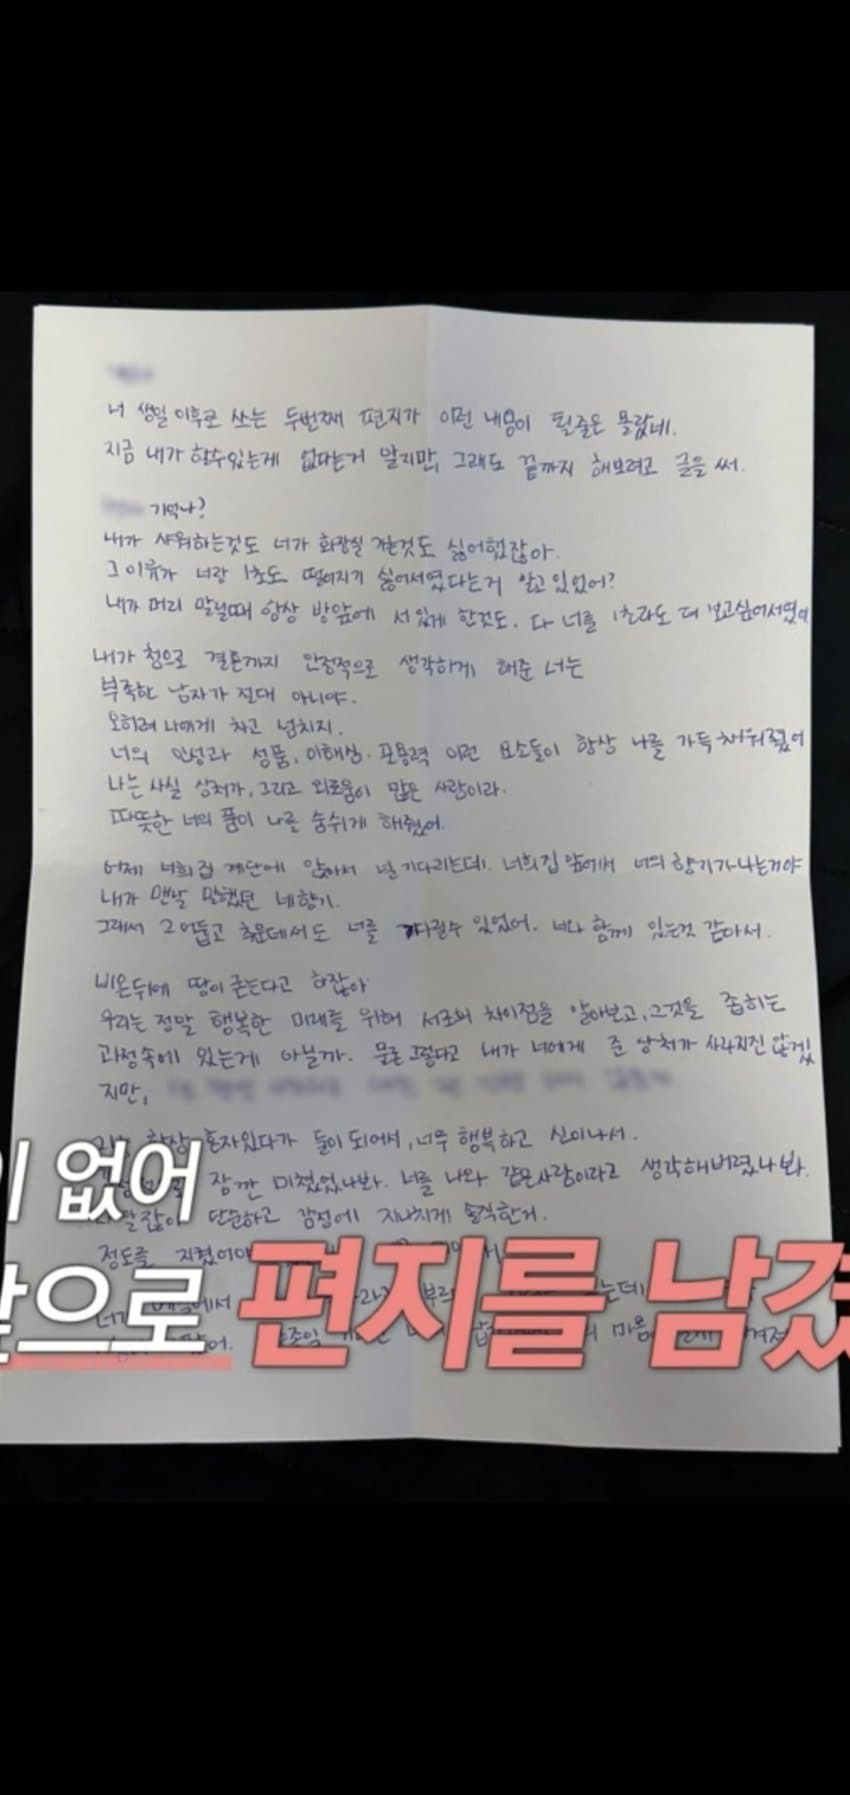 너 생일 이후로 쓰는 두번째 편지가 이런 내용이 될줄은 몰랐네.
지금 내가 할수있는게 없다는거 알지만, 그래도 끝까지 해보려고 글을 써.
기억나?
내가 샤워하는것도 너가 화장실 가는것도 싫어했잖아.
그 이유가 너랑 1초도 떨어지기 싫어서였다는거 알고있었어?
내가 머리 말릴때 항상 방앞에 서있게 한것도. 다 너를 1초라도 더 보고싶어서였어
내가 첨으로 결혼까지 안정적으로 생각하게 해준 너는
부족한 남자가 절대 아니야.
오히려 나에게 차고 넘치지.
너의 인성과 성품, 이해심. 포용력 이런 요소들이 항상 나를 가득 채워줬어
나는 사실 상처가, 그리고 외로움이 많은 사람이라.
따뜻한 너의 품이 나를 숨쉬게 해줬어.
어제 너희집 계단에 앉아서 널 기다리는데. 너희집 앞에서 너의 향기가 나는거야
내가 맨날 말했던 네향기.
그래서 그 어둡고 추운데서도 너를 기다릴수 있었어. 너와 함께 있는것 같아서.
비온뒤에 땅이 굳는다고 하잖아
우리는 정말 행복한 미래를 위해 서로의 차이점을 알아보고, 그것을 좁히는
과정속에 있는게 아닐까. 물론 그렇다고 내가 너에게 준 상처가 사라지진 않겠
지만,
항상 혼자있다가 둘이 되어서, 너무 행복하고 신이나서.
잠깐 미쳤었나봐. 너를 나와 같은사람이라고 생각해버렸나봐.
단순하고 감정에 지나치게 솔직한거.
정도를 지켰어야
너가
마음
이 없어
앞으로 편지를 남겼